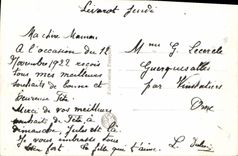 Livarot Jeudi
Ma chère Maman
A l'occasion du 12
Novembre 1922 reçois
tous mes meilleurs
souhaits de bonne et
heureuse Fête.
Merci de vos meilleurs
souhaits de Fête à
dimanche, Jules est là
Je vous embrasse bien
fort. ta fille qui t'aime. L.
Mme G. Leercle
Guerquesalles
par Vimoutiers
Orne